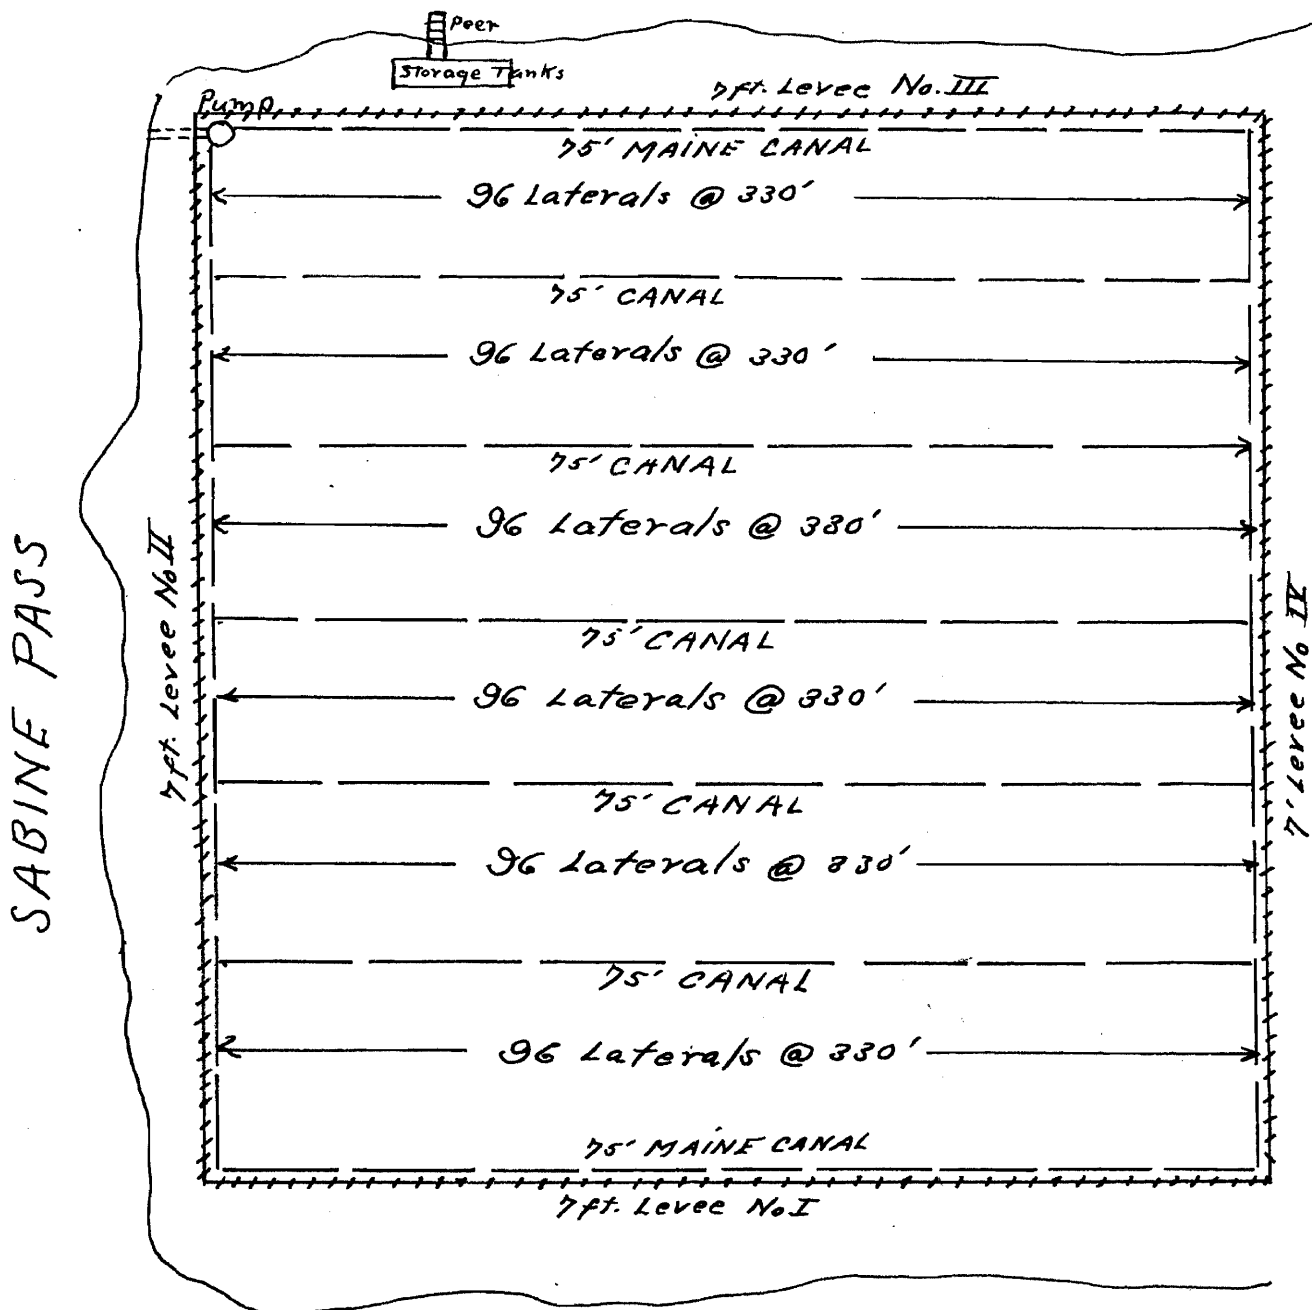 Peer
Storage Tanks
7ft. Levee No. III
Pump
75' MAINE CANAL
96 Laterals @ 330'
75' CANAL
96 Laterals @ 330'
75' CANAL
96 Laterals @ 330'
75' CANAL
96 Laterals @ 330'
75' CANAL
96 Laterals @ 330'
75' CANAL
96 Laterals @ 330'
75' MAINE CANAL
7ft. Levee No I
SABINE PASS
7ft. Levee No II
7' Levee No IV